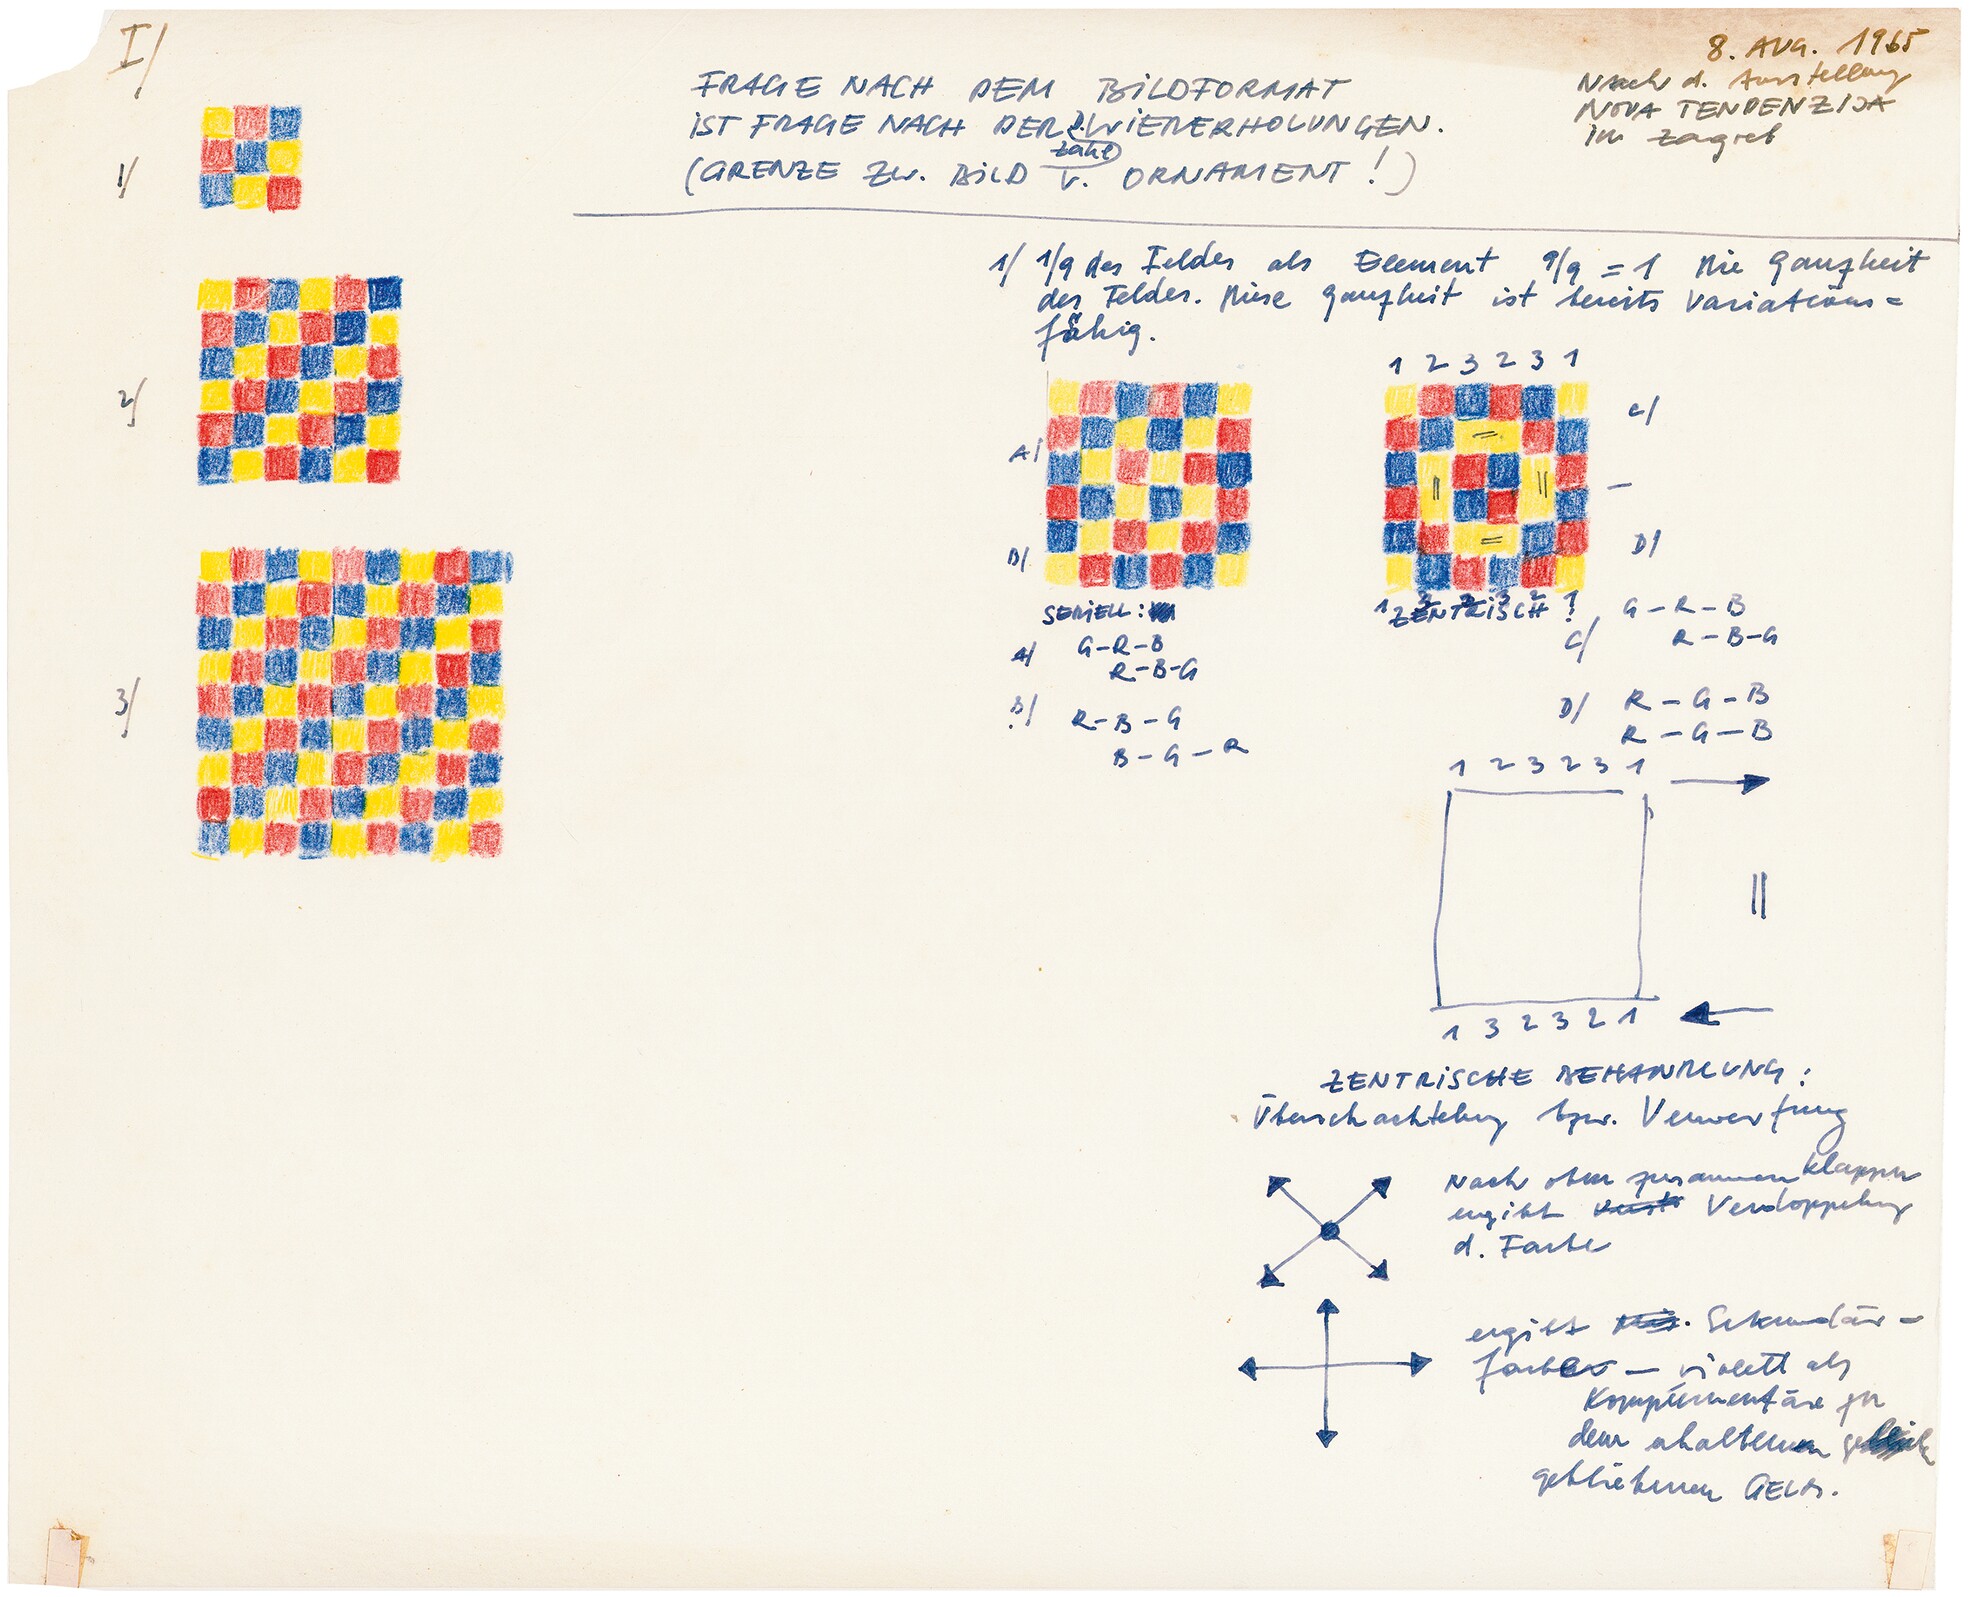 I/
8. AUG. 1965
Nach d. Ausstellung
NOVA TENDENZIJA
in Zagreb
FRAGE NACH DEM BILDFORMAT
IST FRAGE NACH DER Zahl d. WIEDERHOLUNGEN.
(GRENZE ZW. BILD U. ORNAMENT!)
1/
2/
3/
1/ 1/9 des Feldes als Element 9/9 = 1 Die Ganzheit
des Feldes. Diese Ganzheit ist bereits Variations=
fähig.
1 2 3 2 3 1
A/
B/
C/
–
D/
=
||
||
=
SERIELL:
A/ G–R–B
R–B–G
B/ R–B–G
B–G–R
1 3 2 3 2 1
ZENTRISCH
C/ G–R–B
R–B–G
D/ R–G–B
R–G–B
1 2 3 2 3 1
||
1 3 2 3 2 1
ZENTRISCHE BEHANDLUNG:
Überschachtelung bzw. Verwerfung
Nach oben zusammenklappen
ergibt Verdoppelung
d. Farbe
ergibt Sekundär=
farben – violett als
Komplementäre zu
dem erhalten
gebliebenen GELB.